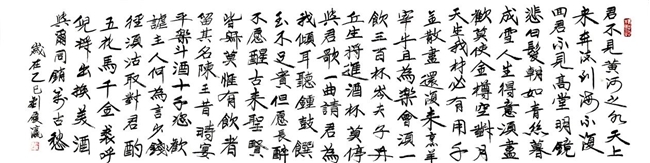 君不見黃河之水天上
來奔流到海不復
回君不見高堂明鏡
悲白髮朝如青絲暮
成雪人生得意須盡
歡莫使金樽空對月
天生我材必有用千
金散盡還復來烹羊
宰牛且為樂會須一
飲三百杯岑夫子丹
丘生將進酒杯莫停
與君歌一曲請君為
我傾耳聽鐘鼓饌
玉不足貴但願長醉
不願醒古來聖賢
皆寂莫惟有飲者
留其名陳王昔時宴
平樂斗酒十千恣歡
謔主人何為言少錢
徑須沽取對君酌
五花馬千金裘呼
兒將出換美酒
與爾同銷萬古愁
歲在乙巳劉